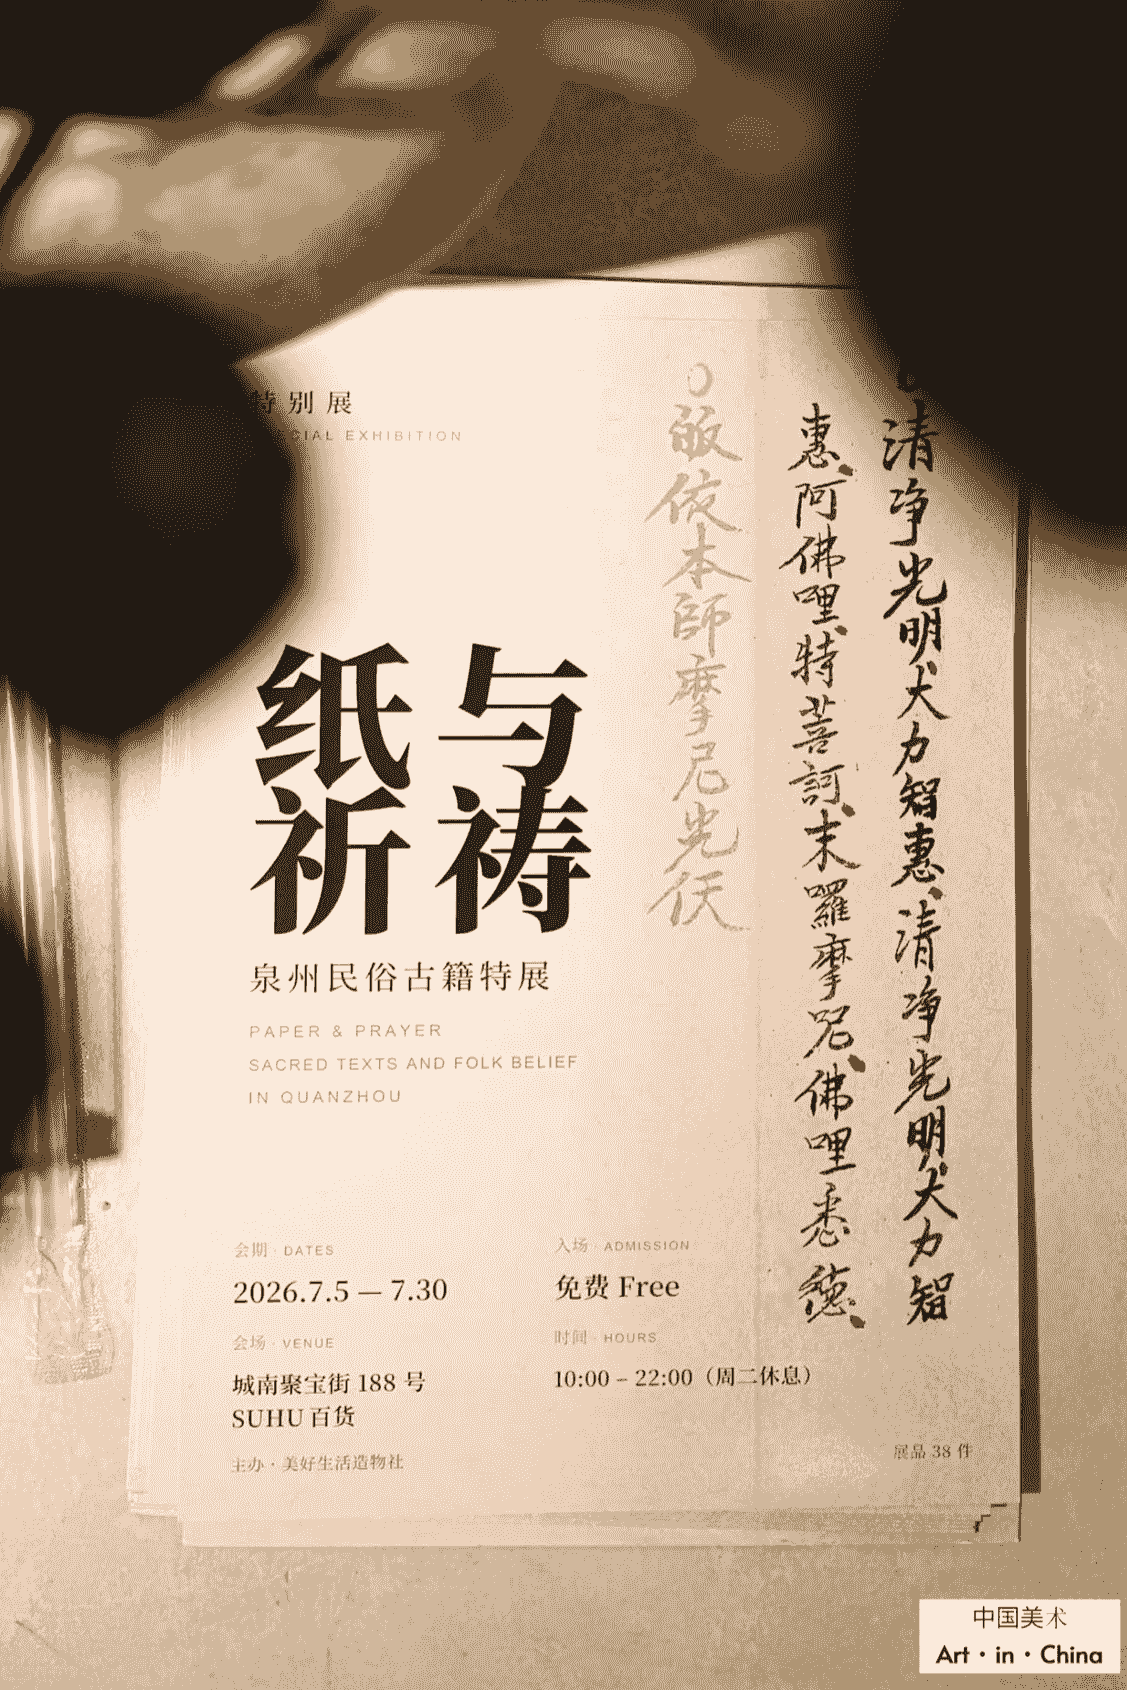 特别展
SPECIAL EXHIBITION
纸与
祈祷
泉州民俗古籍特展
PAPER & PRAYER
SACRED TEXTS AND FOLK BELIEF
IN QUANZHOU
清净光明大力智惠、清净光明大力智
惠、阿佛哩特菩訶、末囉摩呢、佛哩悉德、
皈依本師摩尼光佛
会期 · DATES
2026.7.5 — 7.30
入场 · ADMISSION
免费 Free
会场 · VENUE
城南聚宝街 188 号
SUHU 百货
时间 · HOURS
10:00 – 22:00（周二休息）
主办 · 美好生活造物社
展品 38 件
中国美术
Art · in · China